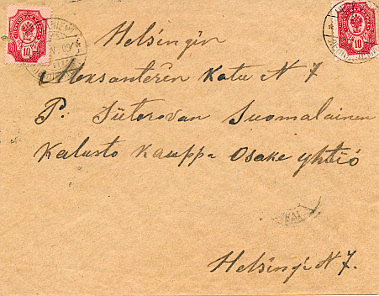 Helsingin
Aleksanterin Katu N 7
P. Sidorovan Suomalainen
Kalusto Kauppa Osake yhtiö
Helsingi N 7.
10
10